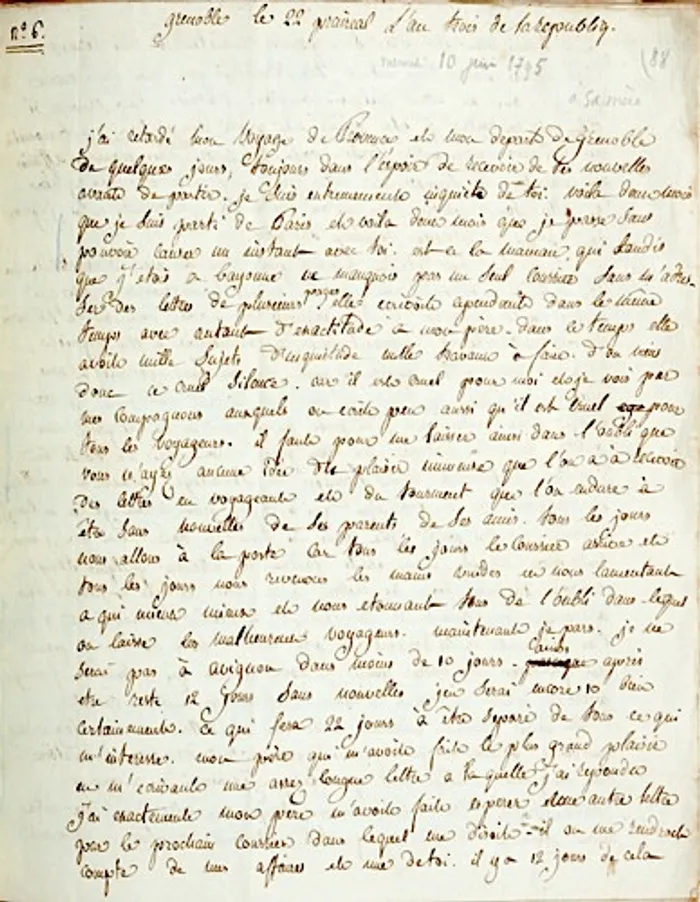 n.° 6.
grenoble le 22 prairial l'an trois de la republiq.
10 juin 1795
(88
a sa mère
j'ai retardé mon voyage de Provence et mon depart de Grenoble
de quelques jours, toujours dans l'espoir de recevoir de tes nouvelles
avant de partir. je suis extremement inquiete de toi. voila deux mois
que je suis parti de Paris et voila deux mois que je passe sans
pouvoir causer un instant avec toi. est-ce la maman qui tandis
que j'etais a bayonne ne manquoit pas un seul courrier sans m'adres
ser des lettres de plusieurs pages elle ecrivoit cependant dans le même
temps avec autant d'exactitude a mon père. dans ce temps elle
avoit mille sujets d'inquietude mille travaux à faire. d'ou vien
donc ce cruel silence. car il est cruel pour moi et je vois par
mes compagnons auxquels on ecrit peu aussi qu'il est cruel pour
tous les voyageurs. il faut pour me laisser ainsi dans l'oubli que
vous n'ayez aucune idée du plaisir immense que l'on a a recevoir
des lettres en voyageant et du tourment que l'on endure à
être sans nouvelles de ses parents de ses amis. tous les jours
nous allons à la poste car tous les jours le courrier arrive et
tous les jours nous revenons les mains vuides en nous lamentant
a qui mieux mieux et nous etonnant tous de l'oubli dans lequel
on laisse les malheureux voyageurs. maintenant je pars. je ne
serai pas à avignon dans moins de 10 jours. ainsi après
etre resté 12 jours sans nouvelles j'en serai encore 10 bien
certainement. Ce qui fera 22 jours à être separé de tous ce qui
m'interesse. mon père qui m'avoit fait le plus grand plaisir
en m'ecrivant une assez longue lettre a laquelle j'ai repondu
exactement mon pere m'avoit fait esperer une autre lettre
par le prochain courrier dans lequel me disoit-il on me rendroit
compte de mes affaires et de toi. il y a 12 jours de cela